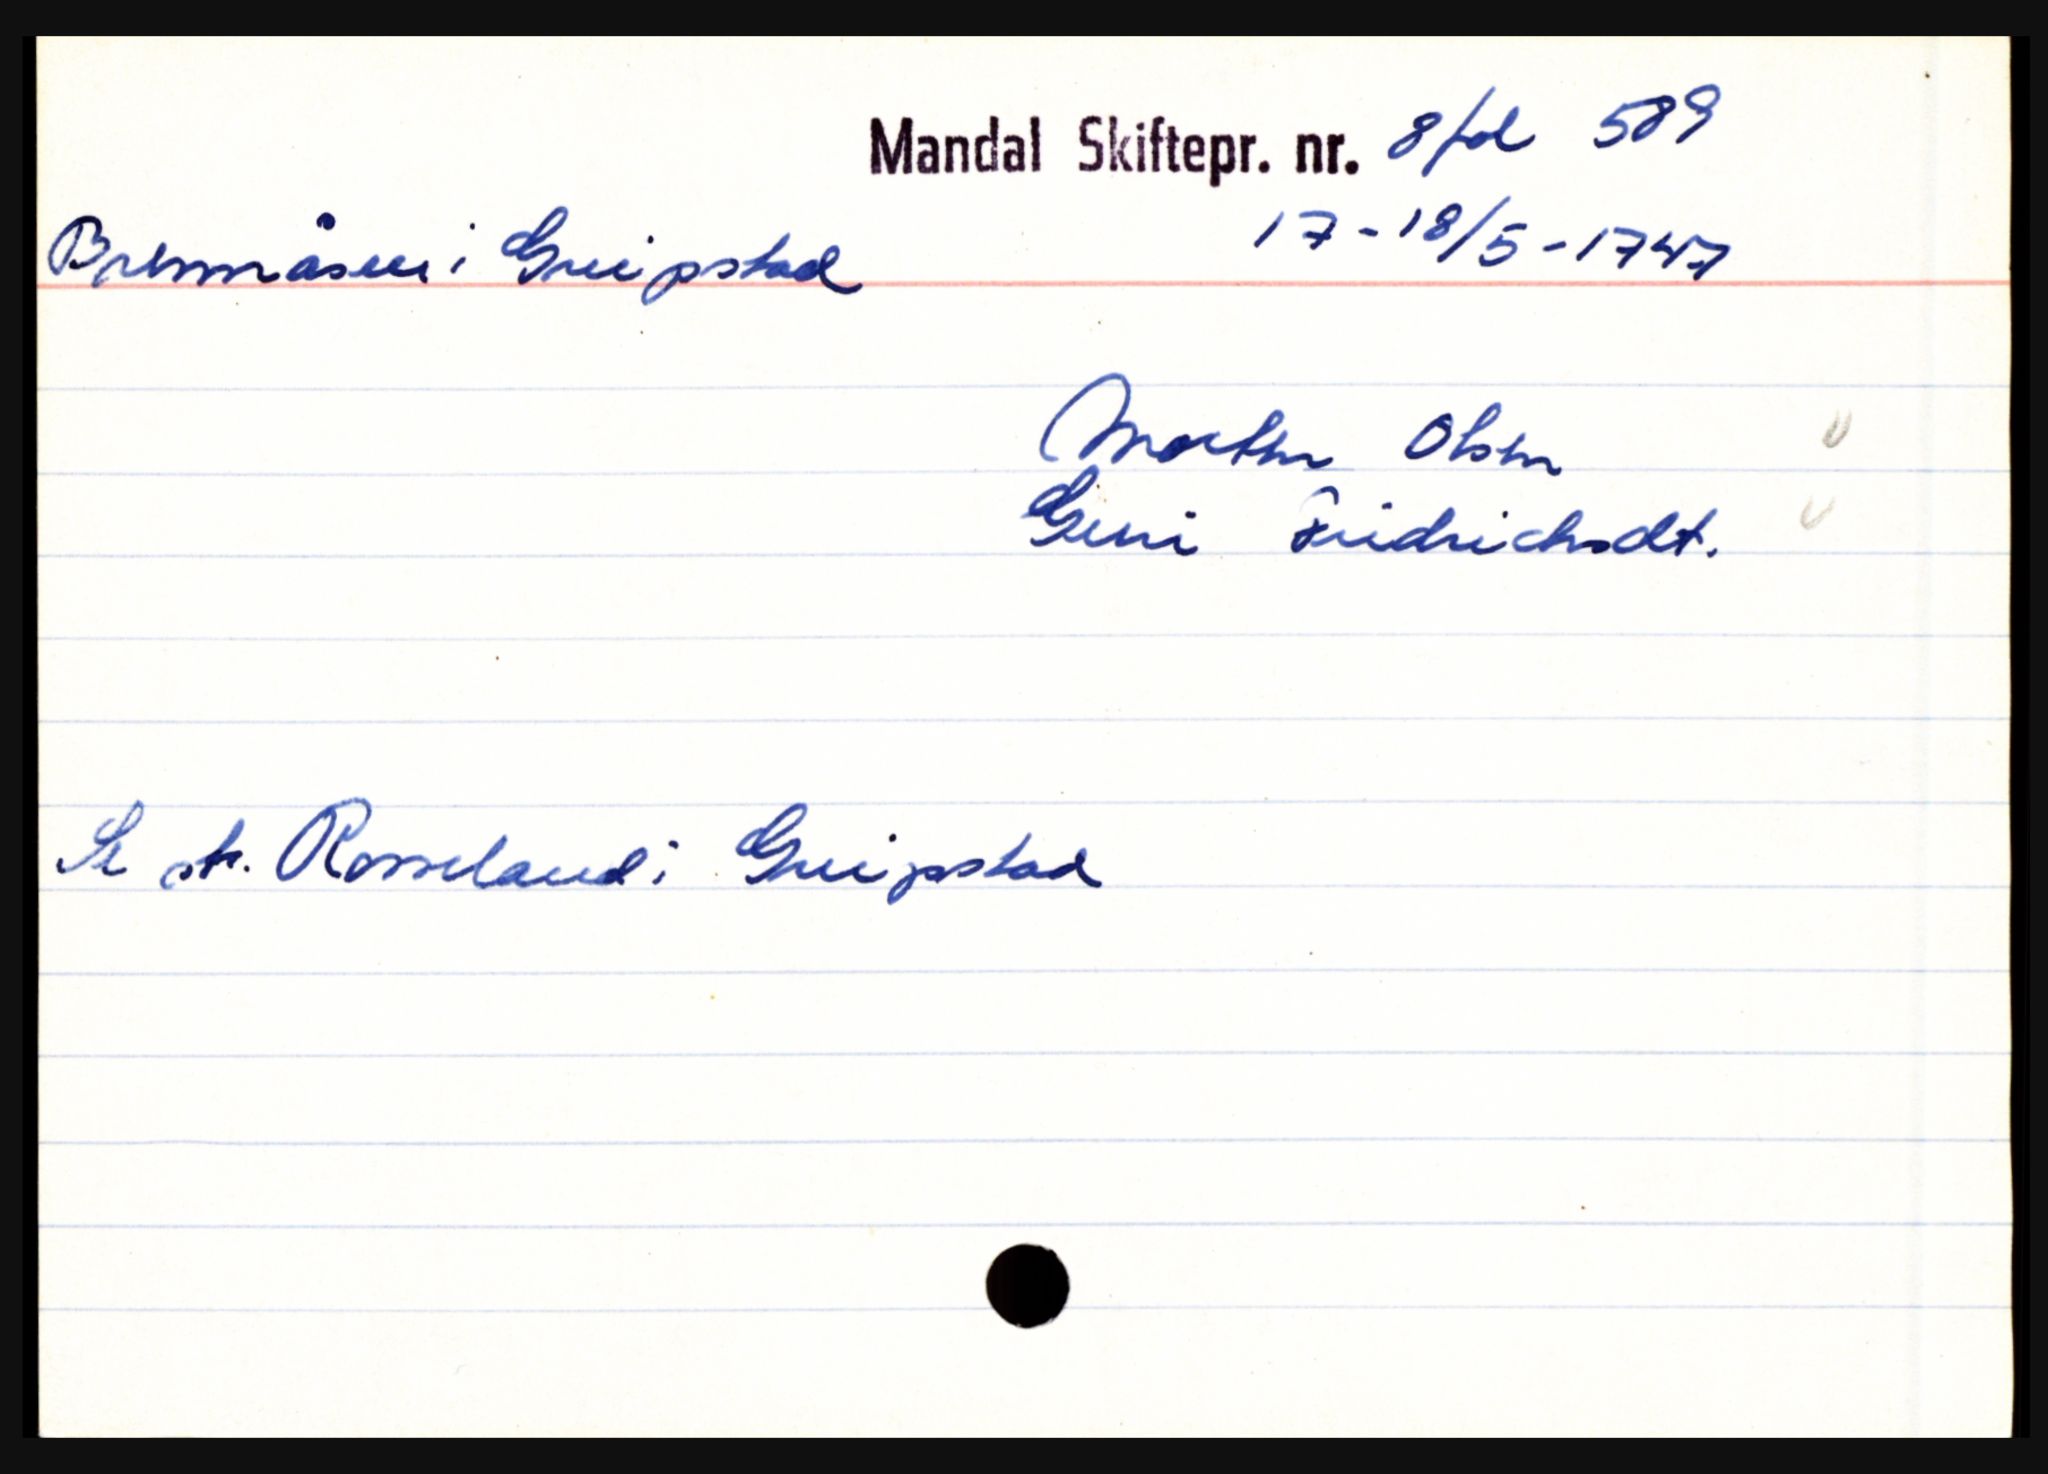 Mandal Skiftepr. nr. 8 fol 589
Brennåsen i Greipstad 17-18/5-1747
Morten Olsen
Guri Fridrichsdt.
Se sk. Rosseland i Greipstad